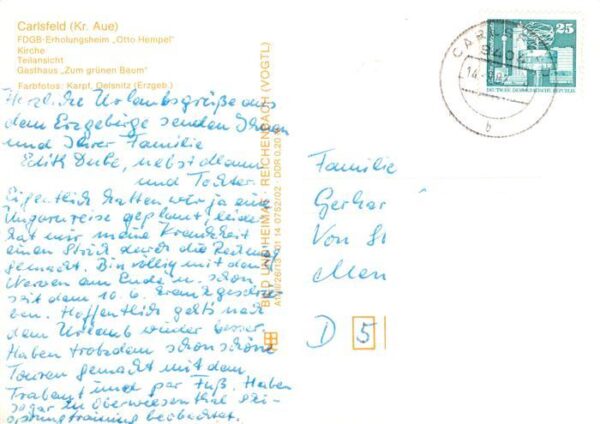 Carlsfeld (Kr. Aue)
FDGB-Erholungsheim „Otto Hempel"
Kirche
Teilansicht
Gasthaus „Zum grünen Baum"
Farbfotos: Karpf, Oelsnitz (Erzgeb.)
Herzliche Urlaubsgrüße aus
dem Erzgebirge senden Ihnen
und Ihrer Familie
Edith nebst Mann
und Tochter.
Eigentlich hatten wir ja eine
Ungarnreise geplant, leider
hat mir meine Krankheit
einen Strich durch die Rechnung
gemacht. Bin völlig mit den
Nerven am Ende u. schon
seit dem 10. 6. krank geschrie
ben. Hoffentlich geht's nach
dem Urlaub wieder besser.
Haben trotzdem schon schöne
Touren gemacht mit dem
Trabant und per Fuß. Haben
sogar in Oberwiesenthal Ski-
sprungtraining beobachtet.
BILD UND HEIMAT · REICHENBACH (VOGTL)
01 14 0752/02 DDR 0,20
25
DEUTSCHE DEMOKRATISCHE REPUBLIK
b
Familie
Gerhar
Von St
D 5